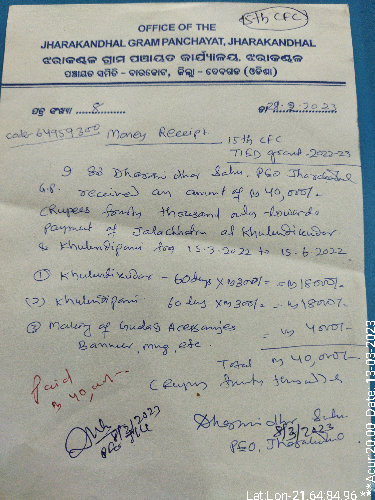 15th CFC
OFFICE OF THE
JHARAKANDHAL GRAM PANCHAYAT, JHARAKANDHAL
ଝରାକଣ୍ଢଳ ଗ୍ରାମ ପଞ୍ଚାୟତ କାର୍ଯ୍ୟାଳୟ, ଝରାକଣ୍ଢଳ
ପଞ୍ଚାୟତ ସମିତି - ବାରକୋଟ, ଜିଲ୍ଲା - ଦେବଗଡ (ଓଡିଶା)
ପତ୍ର ସଂଖ୍ୟା 8
Money Receipt 15th CFC
TIED grant-2022-23
I Sri Dharanidhar Sahu, PEO
G.P. received an amount of Rs 40,000/-
(Rupees fourty thousand only towards
payment of Jalachhatra at Khulendikudar
& Khulendipani for 15-3-2022 to 15-6-2022
(1) Khulendikudar - 60 days x Rs 300/- = Rs 18000/-
(2) Khulendipani 60 days x Rs 300/- = Rs 18000/-
(3) Making of Accessories
Banner, mug, etc. Rs 4000/-
Total Rs 40,000/-
(Rupees fourty thousand
Paid
Rs 40,000/-
8/3/2023
Dharanidhar Sahu
8/3/2023
PEO,
Lat Lon-21 64:84.96 ***Acur:20.00 Date:13-03-2023